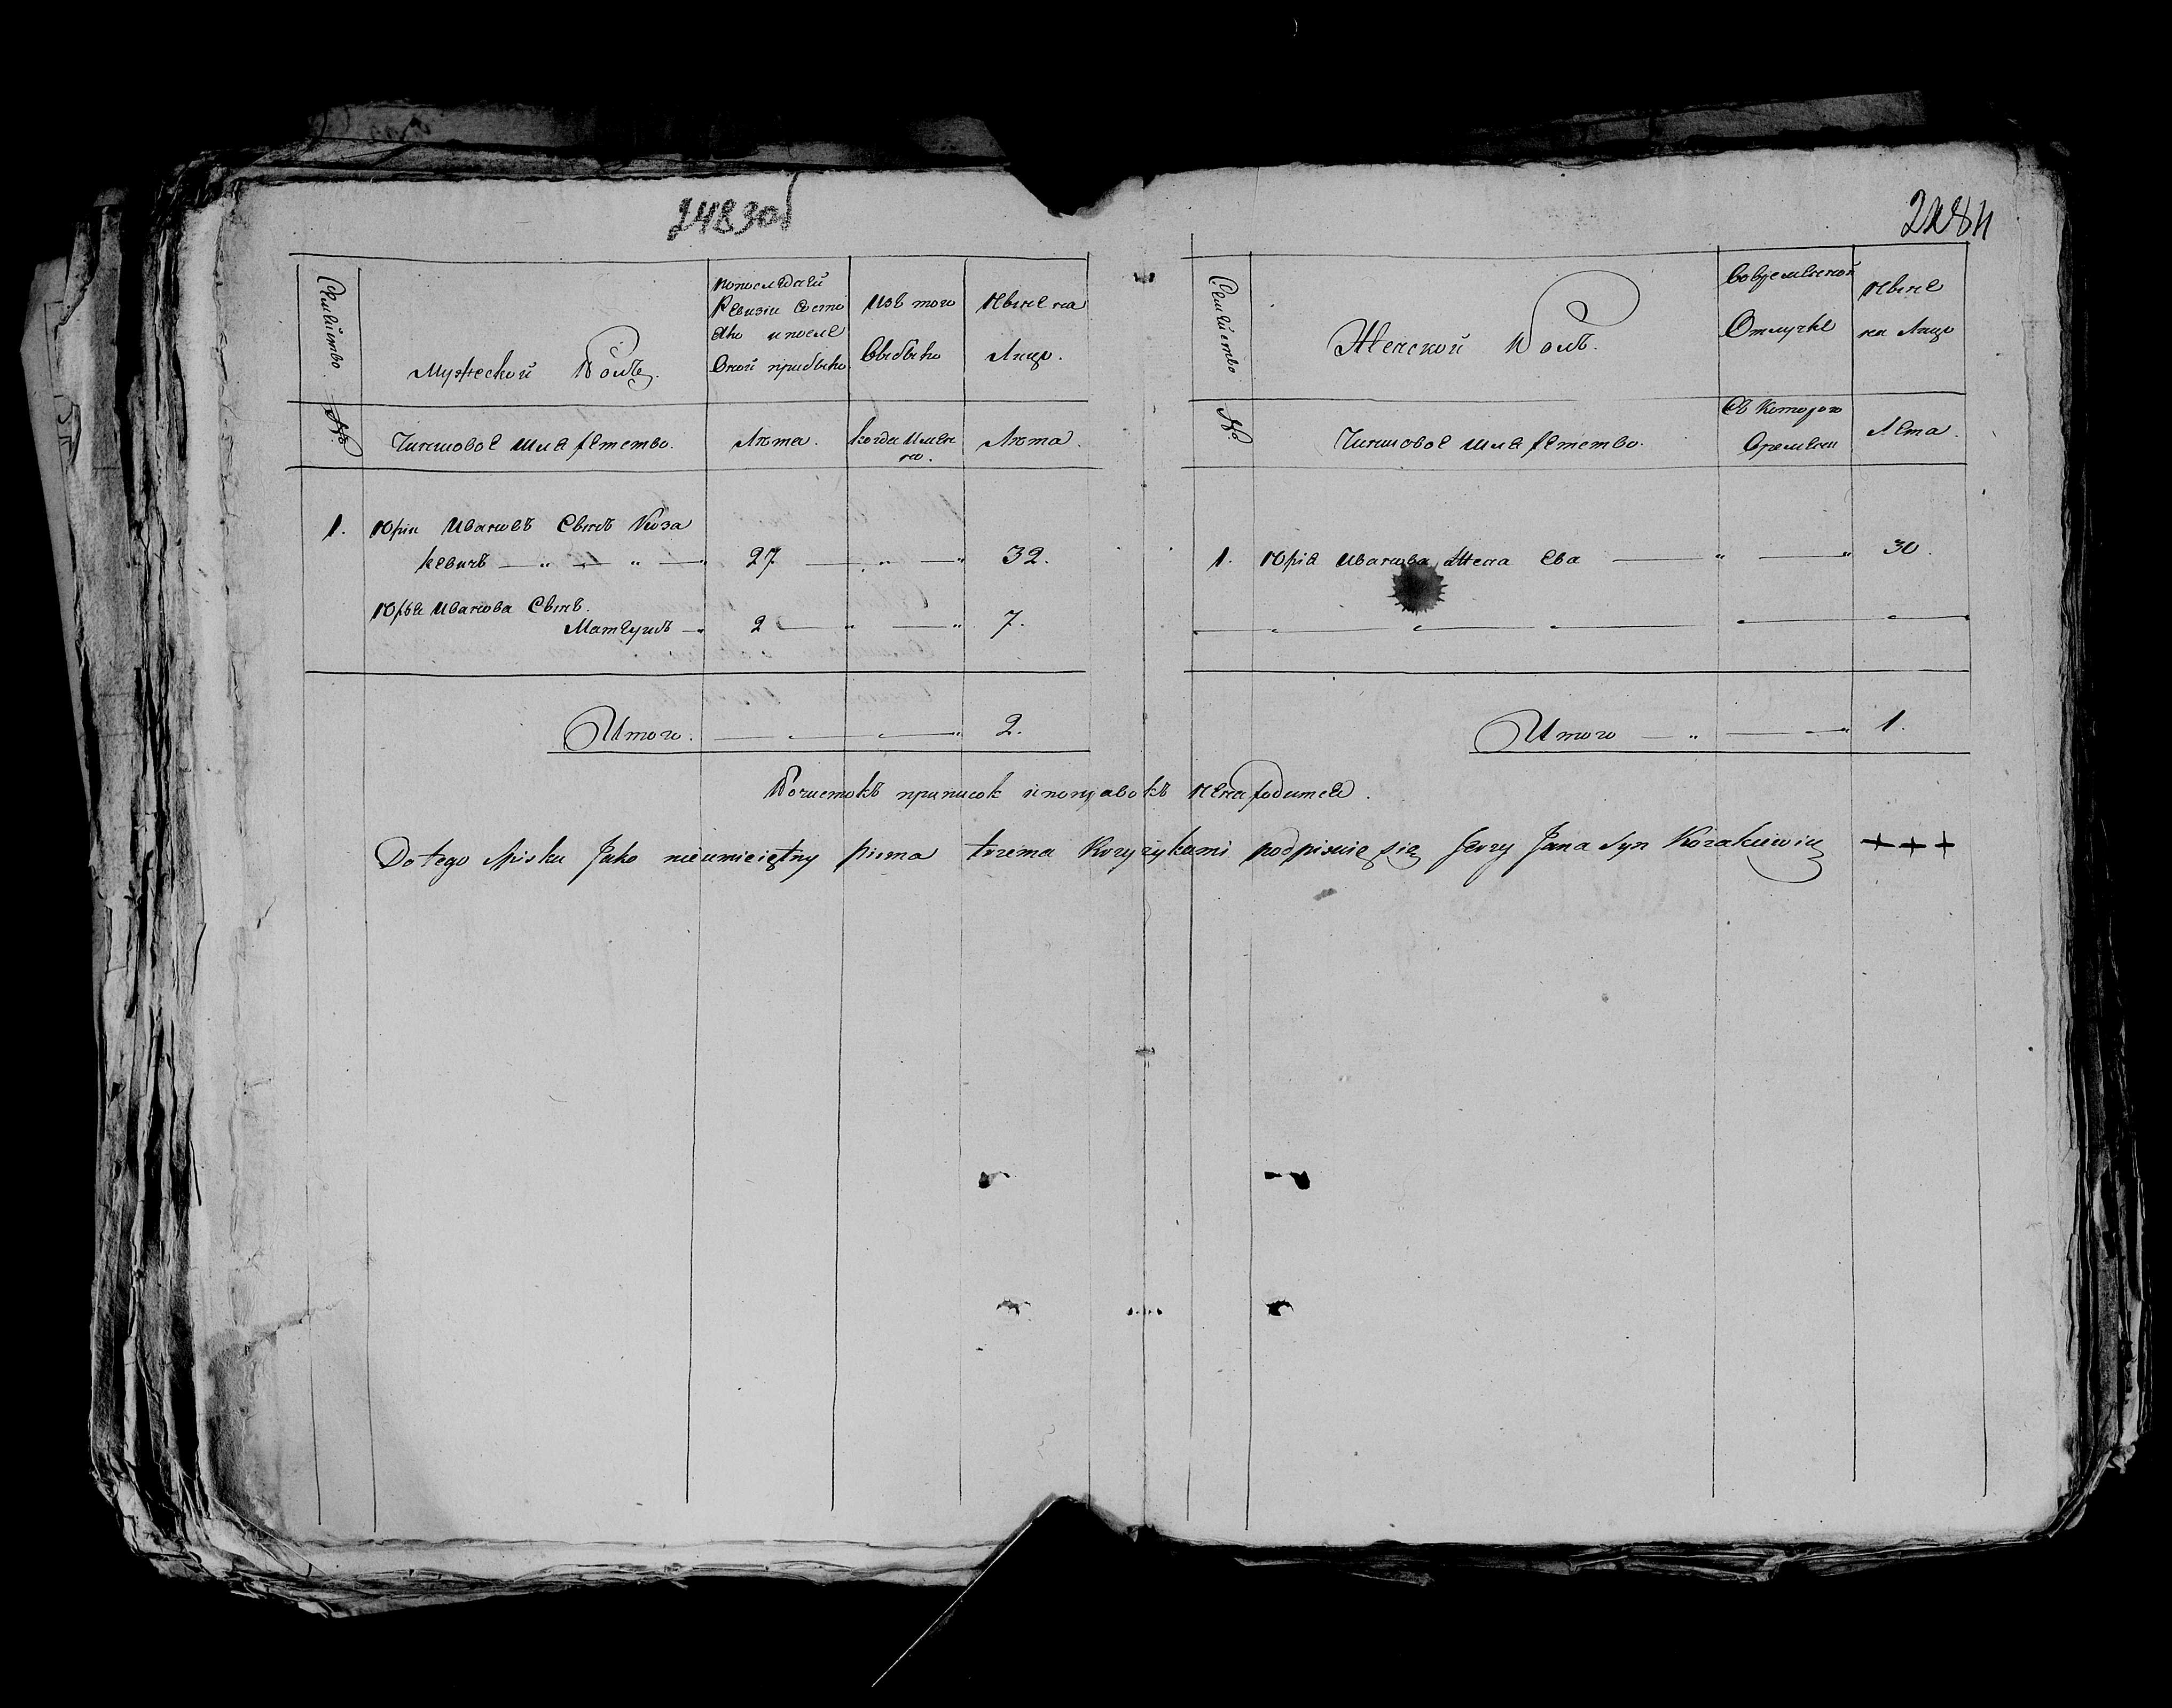 2483об
2284
Семейство
Мужеской Полъ.
Попоследней Ревизіи Состо яло ипосле Оной прибыло
Изъ того Выбыло
Ныне на Лицо.
№
Чиншовое шляхетство.
Лѣта.
когда Имян но.
Лѣта.
1. Юрiи Ивановъ Сынъ Коза
кевичъ 27 32.
Юрья Иванова Сынъ.
Матеушъ 2 7.
Итого. 2.
Семейство
Женской Полъ.
Вовременной Отлучке
Ныне на Лицо
№
Чиншовое шляхетство.
Съ Которого Времяни
Лета.
1. Юрiя Иванова Жена Ева 30.
Итого 1.
Почистокъ приписок ипоправокъ ненаходится.
Do tego Spisku Jako nieumieiętny pisma trzema Krzyżykami podpisuię się Jerzy Jana Syn Kozakiewicz +++